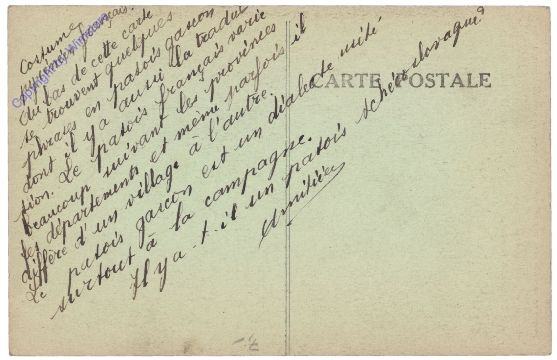 CARTE POSTALE
Costumes
pyrénéen français.
Au bas de cette carte
se trouvent quelques
phrases en patois gascon
dont il y a aussi la traduc
tion. Le patois français varie
beaucoup suivant les provinces
les départements et même parfois il
diffère d'un village à l'autre.
Le patois gascon est un dialecte usité
surtout à la campagne.
Il y a-t-il un patois schécoslovaque?
Amitiés